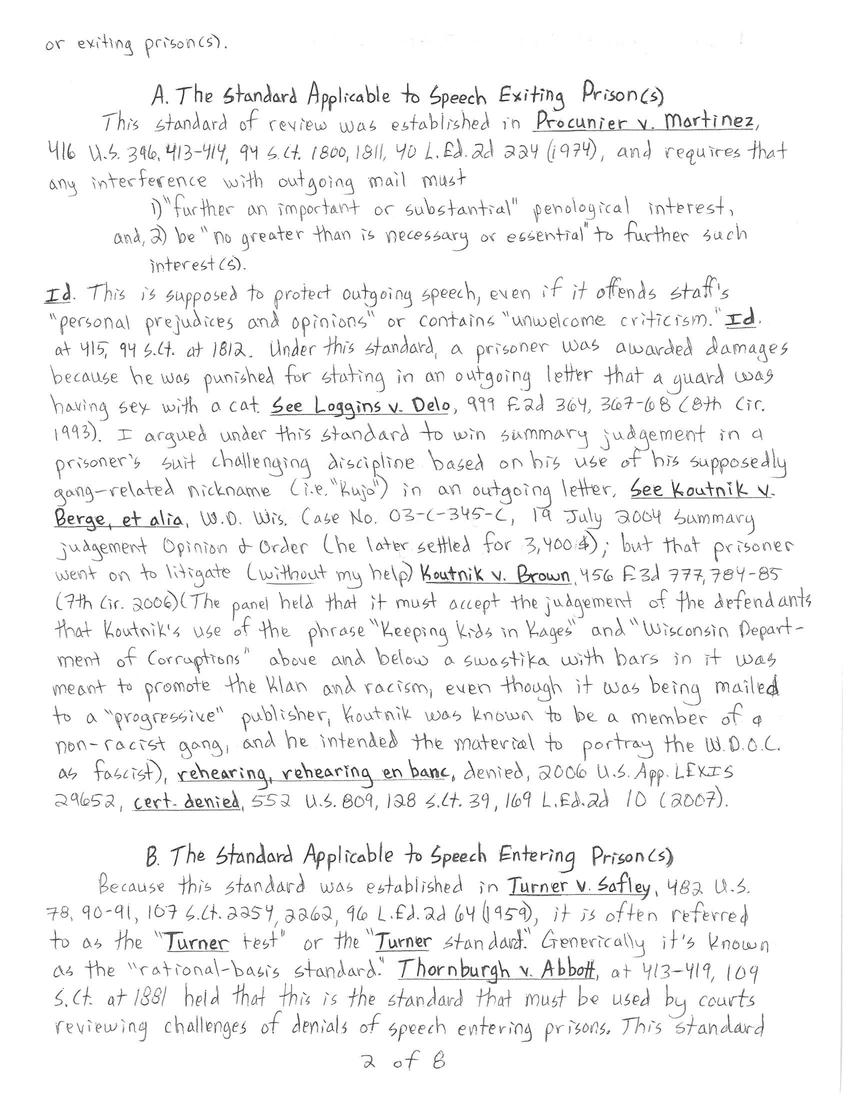 or exiting prison(s).
A. The Standard Applicable to Speech Exiting Prison(s)
This standard of review was established in Procunier v. Martinez,
416 U.S. 396, 413-414, 94 S.Ct. 1800, 1811, 40 L.Ed.2d 224 (1974), and requires that
any interference with outgoing mail must
1) "further an important or substantial" penological interest,
and, 2) be "no greater than is necessary or essential" to further such
interest(s).
Id. This is supposed to protect outgoing speech, even if it offends staff's
"personal prejudices and opinions" or contains "unwelcome criticism." Id.
at 415, 94 S.Ct. at 1812. Under this standard, a prisoner was awarded damages
because he was punished for stating in an outgoing letter that a guard was
having sex with a cat. See Loggins v. Delo, 999 F.2d 364, 367-68 (8th Cir.
1993). I argued under this standard to win summary judgement in a
prisoner's suit challenging discipline based on his use of his supposedly
gang-related nickname (i.e. "Kujo") in an outgoing letter, See Koutnik v.
Berge, et alia, W.D. Wis. Case No. 03-C-345-C, 19 July 2004 Summary
judgement Opinion & Order (he later settled for 3,400$); but that prisoner
went on to litigate (without my help) Koutnik v. Brown, 456 F.3d 777, 784-85
(7th Cir. 2006) (The panel held that it must accept the judgement of the defendants
that Koutnik's use of the phrase "Keeping Kids in Kages" and "Wisconsin Depart-
ment of Corruptions" above and below a swastika with bars in it was
meant to promote the Klan and racism, even though it was being mailed
to a "progressive" publisher, Koutnik was known to be a member of a
non-racist gang, and he intended the material to portray the W.D.O.C.
as fascist), rehearing, rehearing en banc, denied, 2006 U.S. App. LEXIS
29652, cert. denied, 552 U.S. 809, 128 S.Ct. 39, 169 L.Ed.2d 10 (2007).
B. The Standard Applicable to Speech Entering Prison(s)
Because this standard was established in Turner v. Safley, 482 U.S.
78, 90-91, 107 S.Ct. 2254, 2262, 96 L.Ed.2d 64 (1959), it is often referred
to as the "Turner test" or the "Turner standard." Generically it's known
as the "rational-basis standard." Thornburgh v. Abbott, at 413-419, 109
S.Ct. at 1881 held that this is the standard that must be used by courts
reviewing challenges of denials of speech entering prisons. This standard
2 of 8